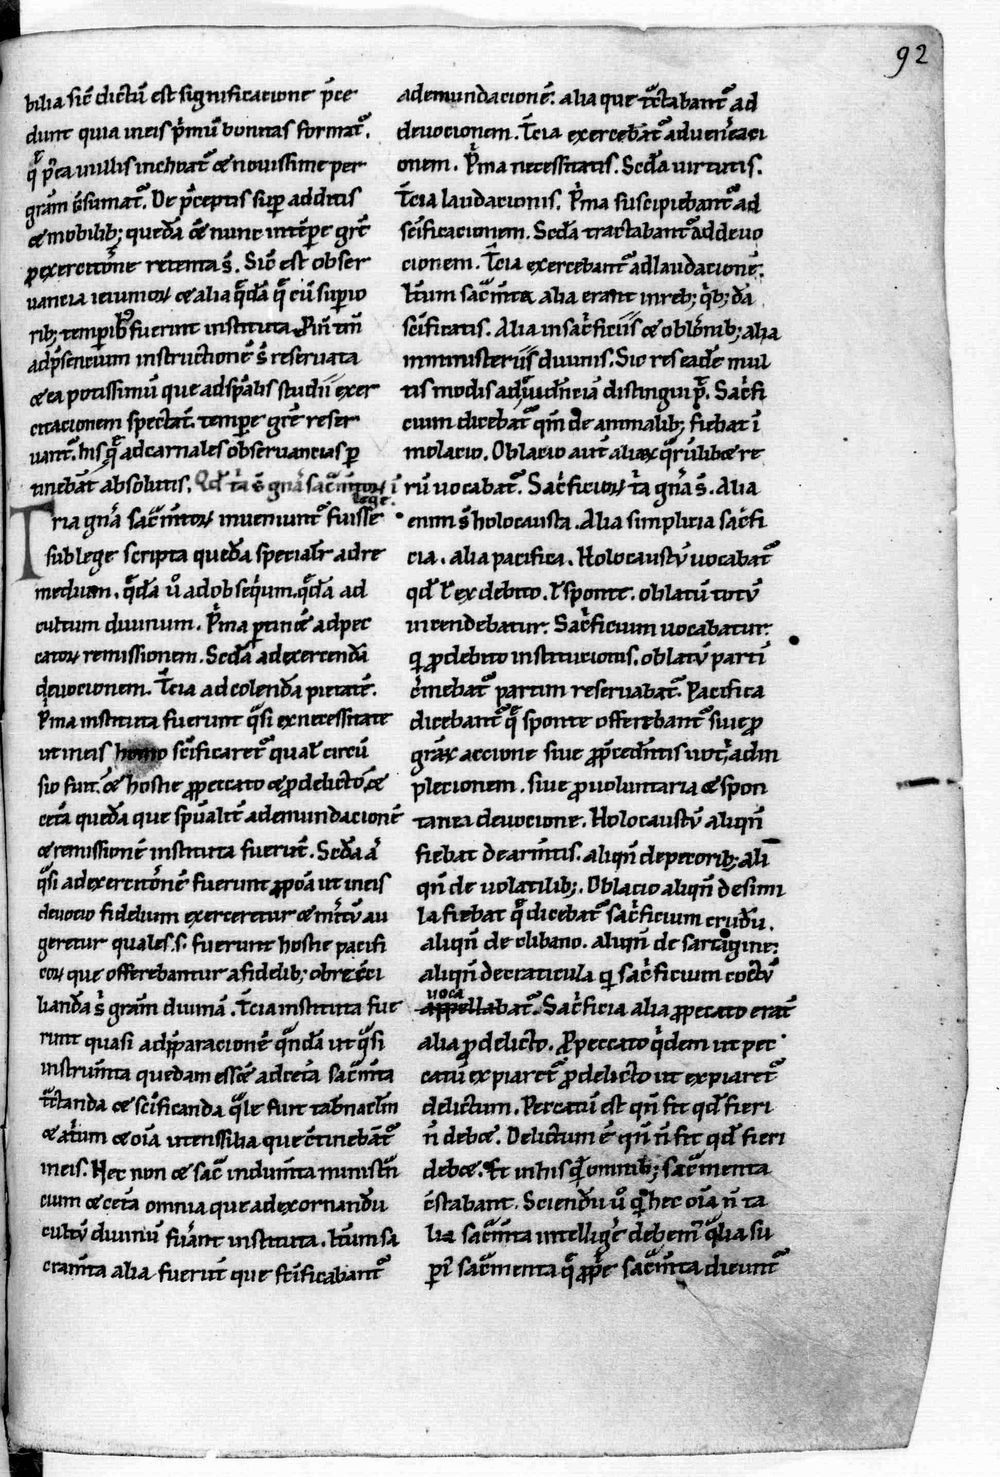 92
bilia sic̄ dictū est significatione p̄ce
dunt quia in eis p̄mū bonitas format᷑.
q̄ p̄cta uullis inchoat᷑ ⁊ nouissime per
grām ꝯsumat᷑. De p̄ceptis sup additis
⁊ mobilib; quedā ēt nunc intēpe grē
ꝓ exercitōne retenta s̄. Sic̄ est obser
uantia ieiunioꝝ ⁊ alia q̄dā q̄ cū supio
rib; tempib; fuerint instituta
ad p̄sentium instructionē s̄ reseruata
⁊ ea potissimū que ad sp̄alis studii exer
citationem spectāt. tempe grē reser
uant᷑. his q̄ ad carnales obseruantias ꝑ
tinebāt absolutis. Qd̄ t̄a s̄ gn̄a sac̄mtoꝝ ī
lege.
Tria gn̄a sac̄mtoꝝ inueniunt᷑ fuisse
sub lege scripta quedā specialr̄ ad re
medium. q̄dā ū ad obsequium. q̄dā ad
cultum diuinum. P̄ma ꝑtinēt ad pec
catoꝝ remissionem. Scdā ad exercendā
deuotionem. T̄cia ad colendā pietatē.
P̄ma instituta fuerunt q̄si ex necessitate
ut in eis homo sc̄ificaret᷑ qual̄ circū
sio fuit. ⁊ hostie ꝓ peccato ⁊ ꝓ delicto. ⁊
cet̄a quedā que sp̄ualit̄ ad emundationē
⁊ remissionē instituta fuerūt. Scdā
q̄si ad exercitōnē fuerunt ꝓposita ut in eis
deuotio fidelium exerceretur ⁊ mītū au
geretur quales .s. fuerunt hostie pacifi
coꝝ que offerebantur a fidelib; ob reconci
liandā s̄ grām diuinā. T̄cia instituta fue
runt quasi ad p̄paracionē q̄ndā ut q̄si
instrum̄ta quedam essēt ad cet̄a sac̄mta
t̄ctanda ⁊ sc̄ificanda q̄le fuit tab̄nacl̄m
⁊ at̄um ⁊ oīa utensilia que ꝯtinebāt᷑
in eis. Nec non ⁊ sac̄ indum̄ta minist̄n
cium ⁊ cet̄a omnia que ad exornandū
cultū diuinū fūant instituta. It̄um sa
cram̄ta alia fuerūt que sc̄ificabant᷑
ad emundacionē. alia que t̄ctabant᷑ ad
deuocionem. T̄cia exercebāt᷑ ad ueneraci
onem. P̄ma necessitatis. Scdā uirtutis.
T̄cia laudacionis. P̄ma suscipiebant᷑ ad
sc̄ificacionem. Scdā tractabant᷑ ad deuo
cionem. T̄cia exercebant᷑ ad laudacionē.
It̄um sac̄mta alia erant in reb; q̄b; dā
sc̄ificatis. Alia in sac̄ficiis ⁊ oblōnib; alia
in ministeriis diuinis. Sic res eadē mul
tis modis ad distingui p̄t. Sac̄fi
cium dicebat᷑ qn̄ de animalib; fiebat ī
molatio. Oblatio aut̄ aliaꝝ q̄rūlibet re
rū uocabat᷑. Sac̄ficioꝝ t̄a gn̄a s̄. Alia
enim s̄ holocausta. Alia simplicia sac̄fi
cia. alia pacifica. Holocaustū uocabat᷑
qd̄ l̄ ex debito. l̄ sponte. oblatū totū
incendebatur. Sac̄ficium uocabatur
q̄ ꝓ debito institucionis. oblatū partī
c̄mebat᷑ partim reseruabat᷑. Pacifica
dicebant᷑ q̄ sponte offerebant᷑ siue ꝓ
gr̄aꝝ accione siue ꝓ p̄cedentis uoti adim
plecionem. siue ꝓ uoluntaria ⁊ spon
tanea deuocione. Holocaustū aliqn̄
fiebat de arm̄tis. aliqn̄ de pecorib; ali
qn̄ de uolatilib;. Oblacio aliqn̄ de simi
la fiebat q̄ dicebat᷑ sac̄ficium crudū.
aliqn̄ de clibano. aliqn̄ de sartagine.
aliqn̄ de craticula q̄ sac̄ficium coctū
uoca
appellabat᷑. Sac̄ficia alia ꝓ peccato erāt
alia ꝓ delicto. Ꝓ peccato q̄dem ut pec
catū expiaret᷑ ꝓ delicto ut expiaret᷑
delictum. Peccatū est qn̄ fit qd̄ fieri
n̄ debet. Delictum ē qn̄ n̄ fit qd̄ fieri
debet. Et in his q̄dē omnib; sac̄menta
ꝯstabant. Sciendū ū q̄ hec oīa n̄ ta
lia sac̄mta intelliḡe debem᷒ q̄lia su
peri sac̄menta q̄ ꝓprie sac̄mta dicunt᷑